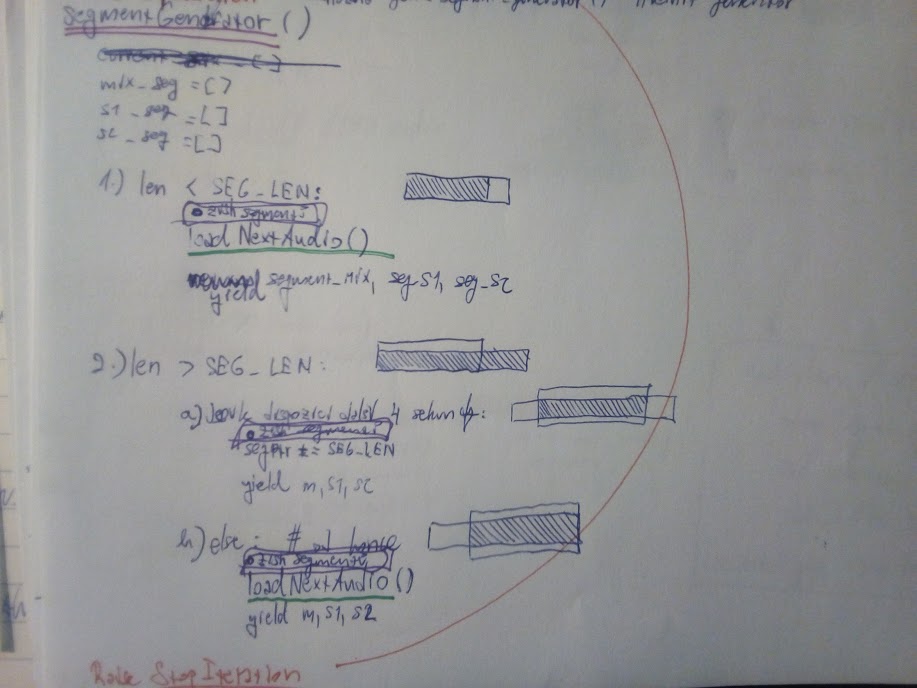 segmentGenerator()
mix_seg = []
s1_seg = []
s2_seg = []
1.) len < SEG_LEN:
• získ segment
loadNextAudio()
yield segment_mix, seg_s1, seg_s2
2.) len > SEG_LEN:
a) 4 sekundy:
• získ segment
+= SEG_LEN
yield m, s1, s2
b) else: # od konce
• získ segment
loadNextAudio()
yield m, s1, s2
Raise StopIteration